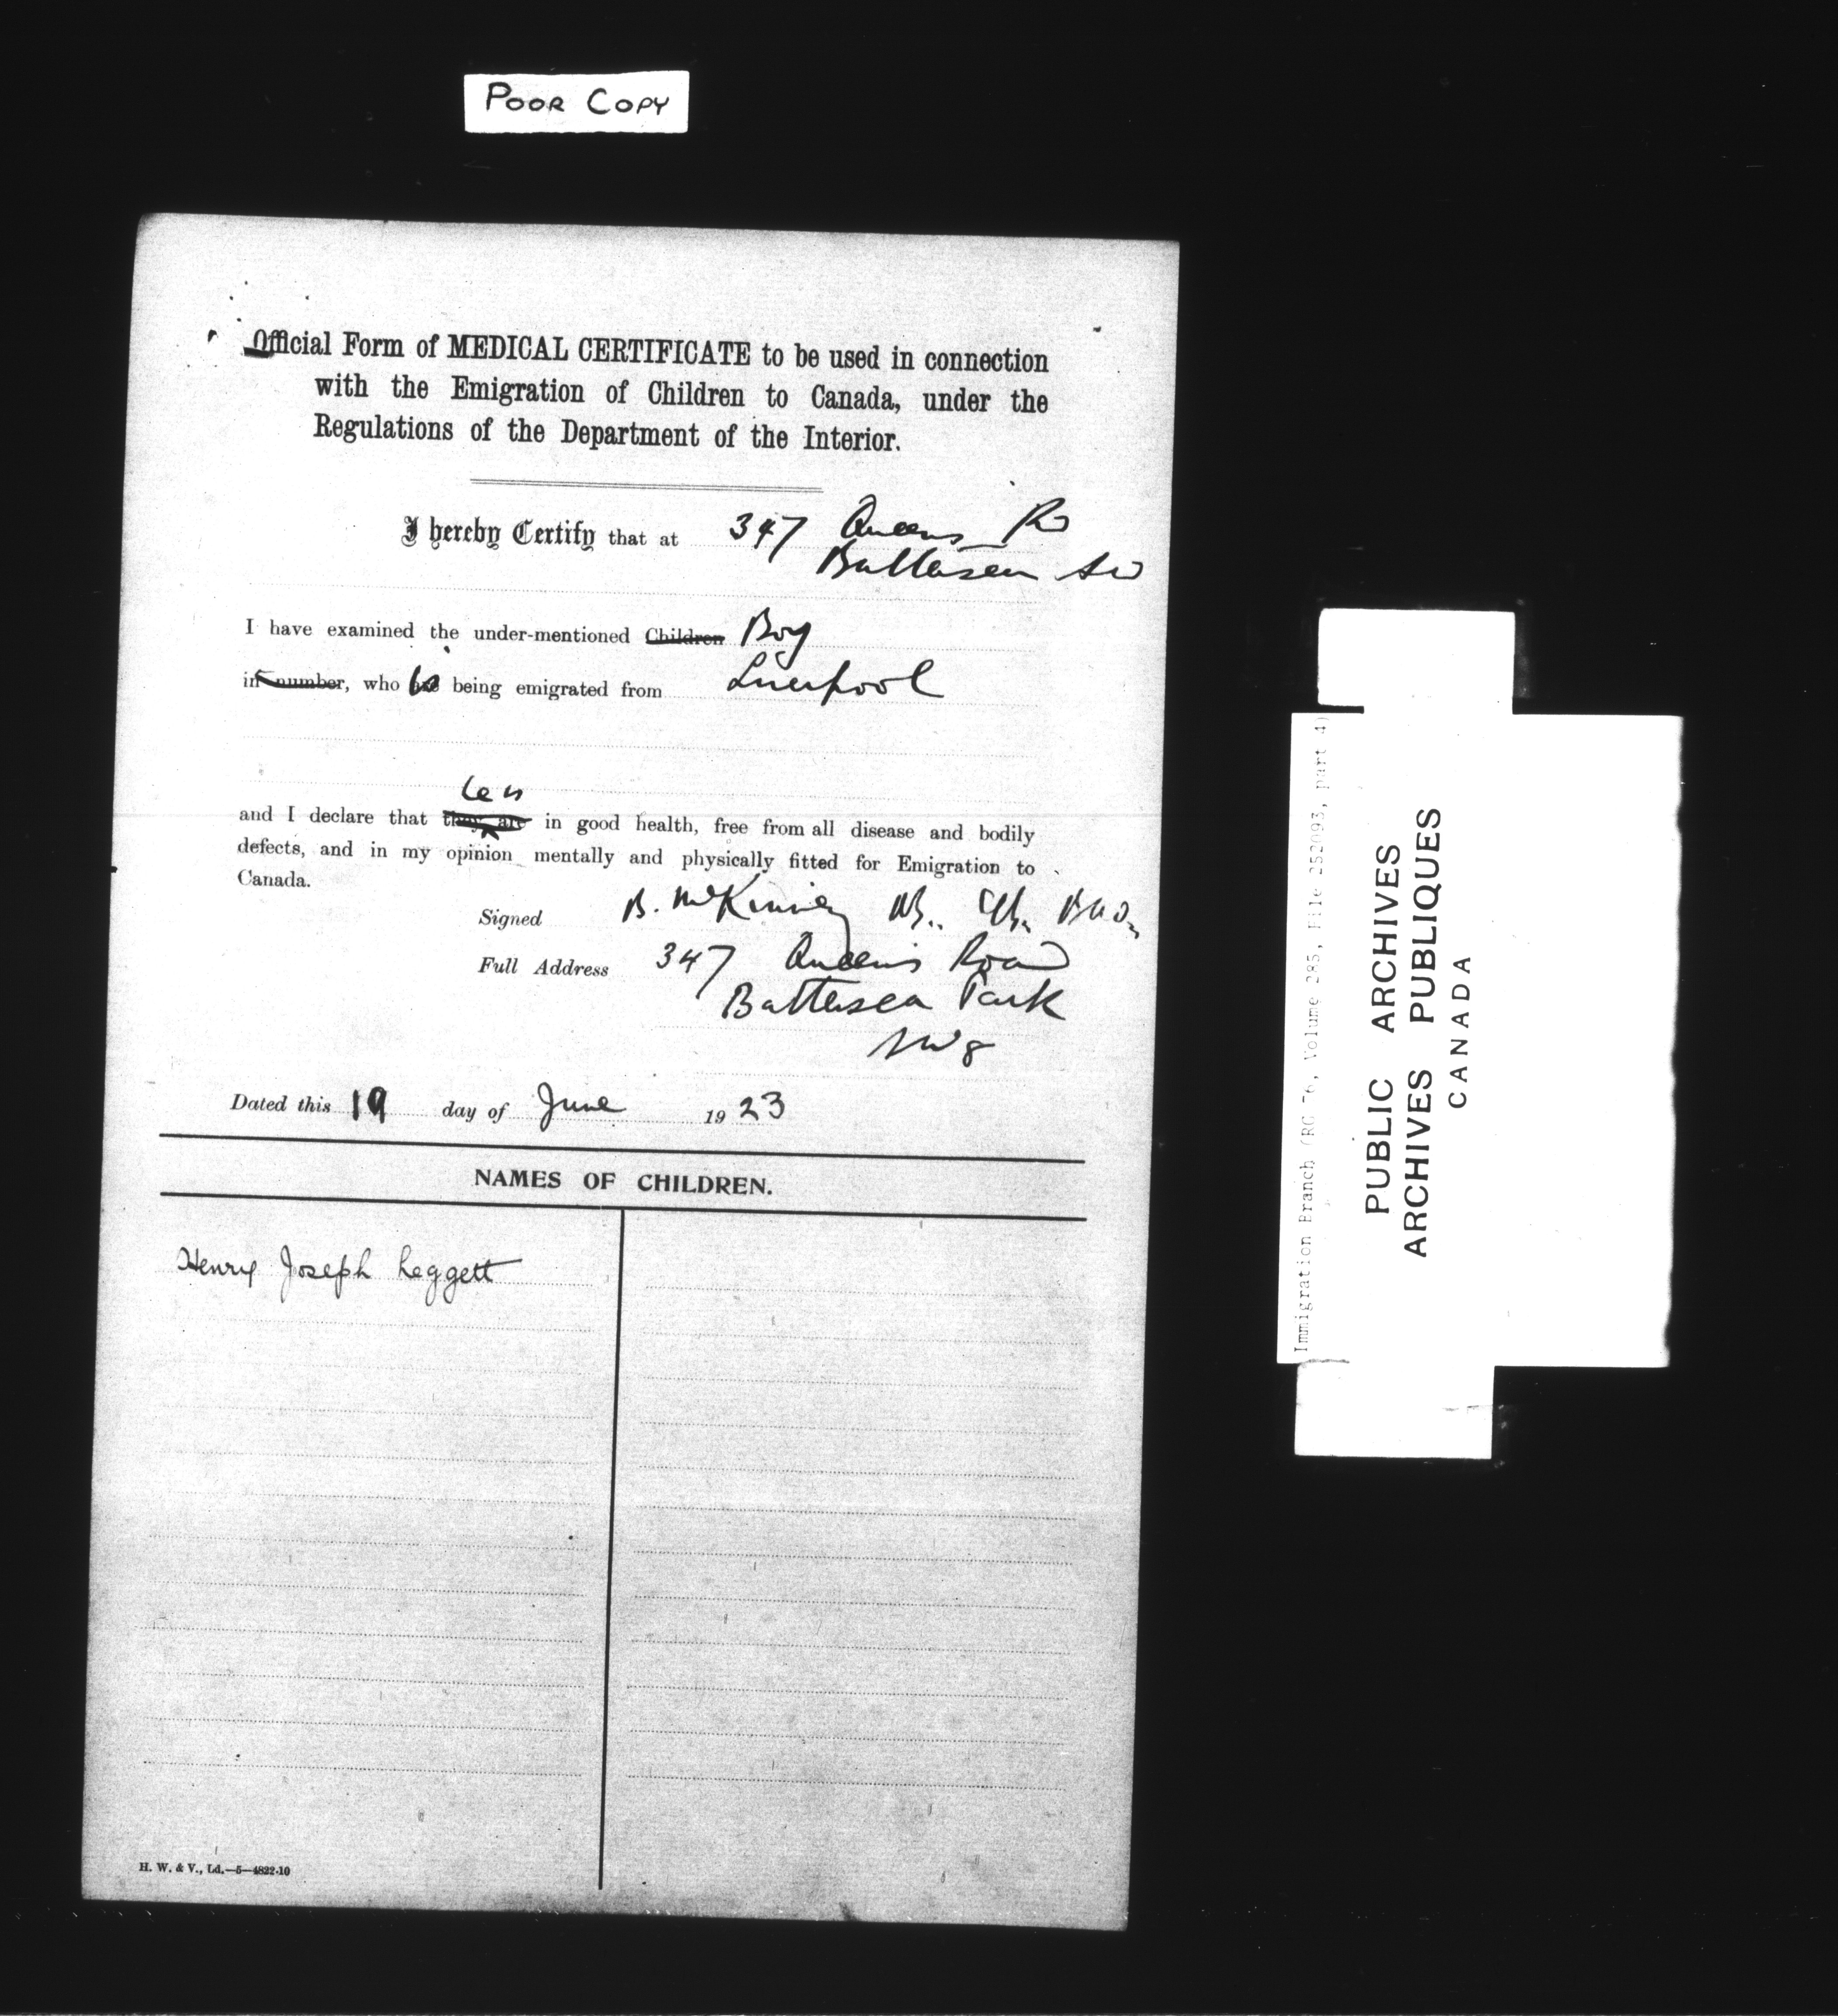 POOR COPY
Official Form of MEDICAL CERTIFICATE to be used in connection
with the Emigration of Children to Canada, under the
Regulations of the Department of the Interior.
I hereby Certify that at 347 Queens Rd
Battersea SW
I have examined the under-mentioned Children Boy
in number, who is being emigrated from Liverpool
he is
and I declare that they are in good health, free from all disease and bodily
defects, and in my opinion mentally and physically fitted for Emigration to
Canada.
Signed B. McKinney MB., Ch. BAO,
Full Address 347 Queen's Road
Battersea Park
SW8
Dated this 19 day of June 1923
NAMES OF CHILDREN.
Henry Joseph Leggett
H. W. & V., Ld.—5—4822-10
Immigration Branch (RG 76, Volume 285, File 252093, part 4)
PUBLIC ARCHIVES
ARCHIVES PUBLIQUES
CANADA